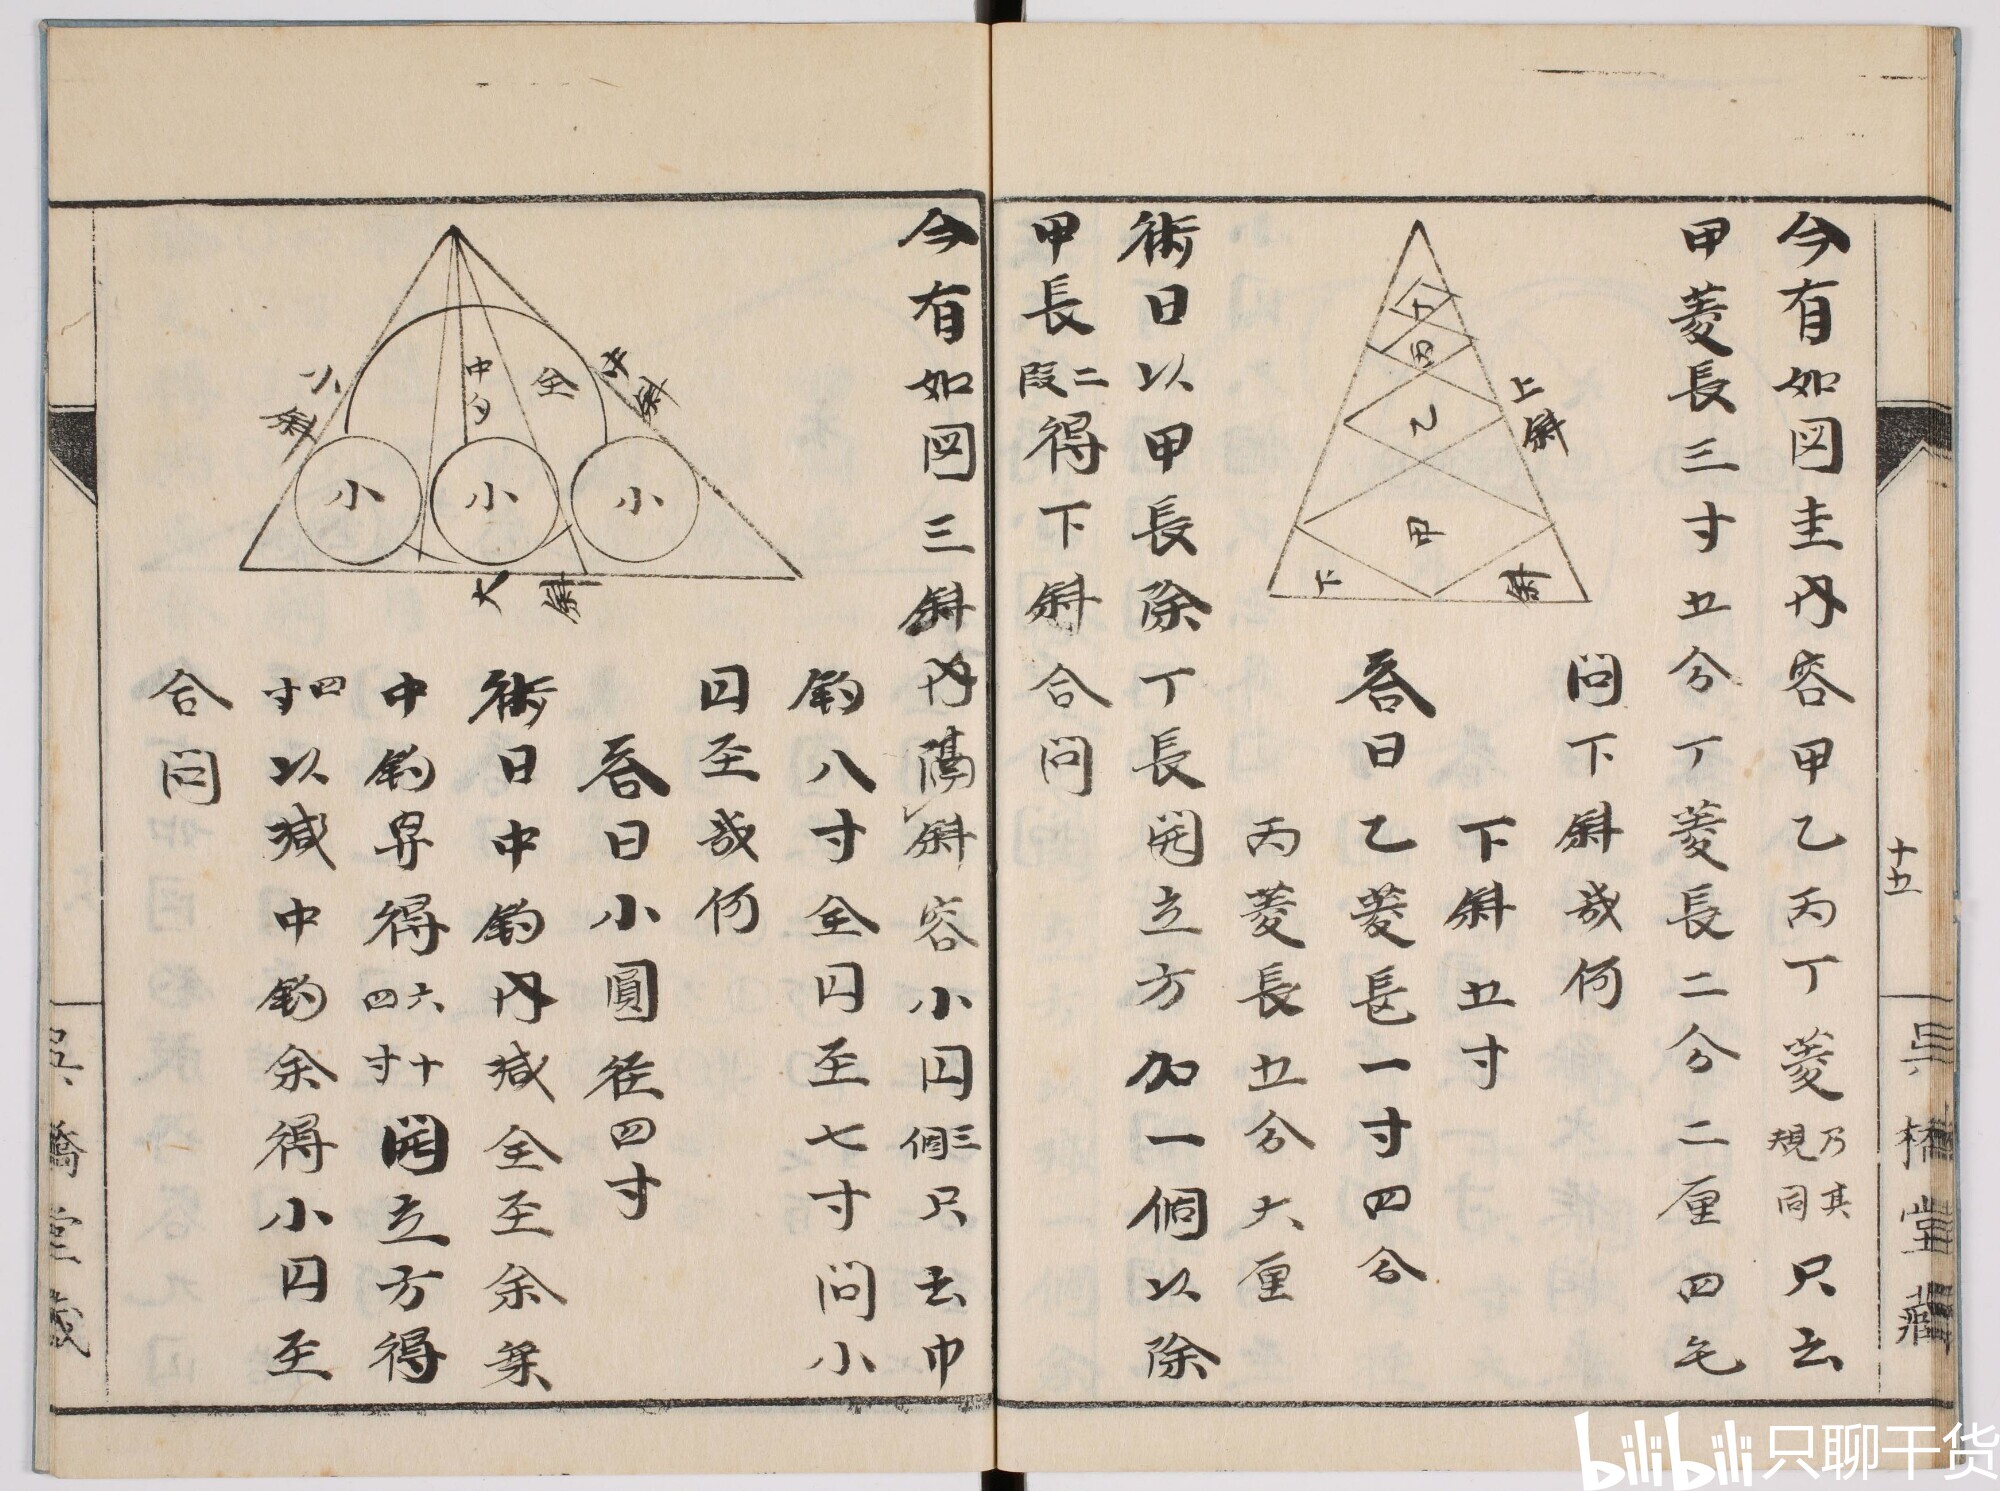 十五
呉橋堂藏
今有如図圭内容甲乙丙丁菱乃其規同只云
甲菱長三寸五分丁菱長二分二厘四毛
問下斜幾何
下斜五寸
答曰乙菱長一寸四分
丙菱長五分六厘
術曰以甲長除丁長開立方加一個以除
甲長二段得下斜合問
丁
丙
乙
甲
上斜
下斜
今有如図三斜内隔斜容小円三個只云中
鈎八寸全円至七寸問小
円至幾何
答曰小圓径四寸
術曰中鈎内減全至余乗
中鈎再得六十四寸開立方得
四寸以減中鈎余得小円至
合問
小斜
中勺
全
中斜
小
小
小
大斜
呉橋堂藏
bilibili 只聊干货